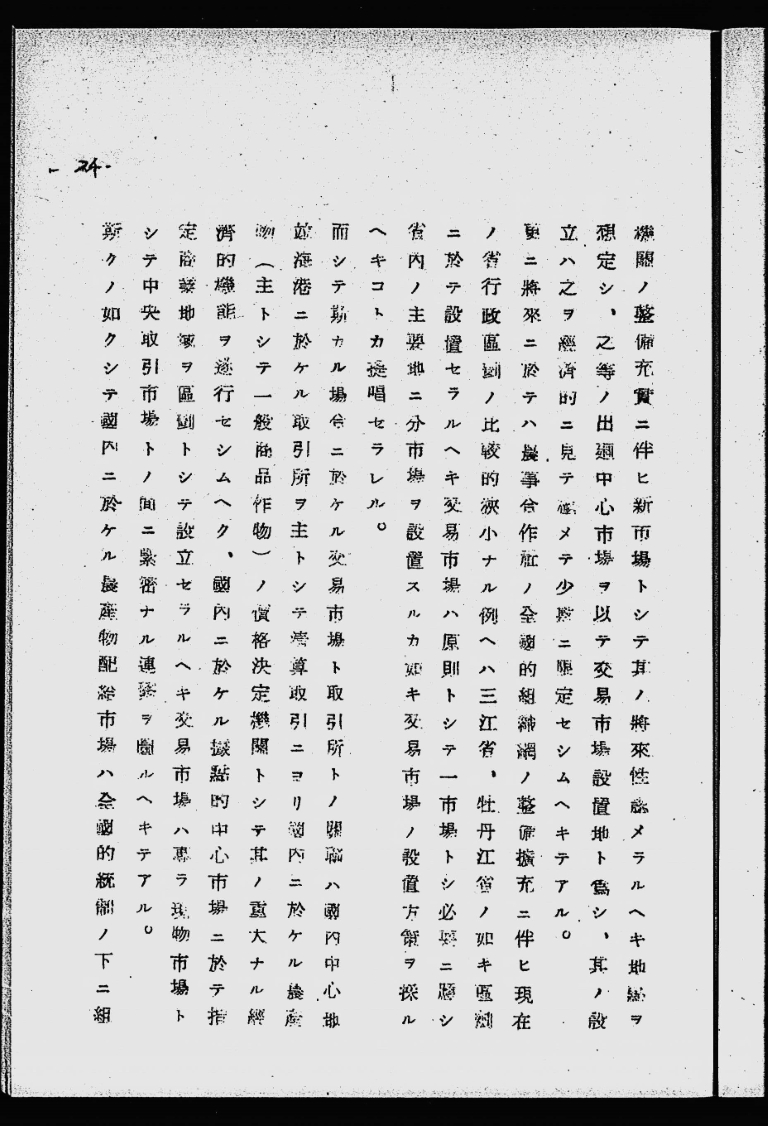 -24-
機關ノ整備充實ニ伴ヒ新市場トシテ其ノ將來性認メラルヘキ地點ヲ
想定シ、之等ノ出廻中心市場ヲ以テ交易市場設置地ト爲シ、其ノ設
立ハ之ヲ經濟的ニ見テ極メテ少數ニ限定セシムヘキテアル。
更ニ將來ニ於テハ農事合作社ノ全國的組織網ノ整備擴充ニ伴ヒ現在
ノ省行政區劃ノ比較的狹小ナル例ヘハ三江省、牡丹江省ノ如キ區劃
ニ於テ設置セラルヘキ交易市場ハ原則トシテ一市場トシ必要ニ應シ
省內ノ主要地ニ分市場ヲ設置スルカ如キ交易市場ノ設置方策ヲ採ル
ヘキコトカ提唱セラレル。
而シテ斯カル場合ニ於ケル交易市場ト取引所トノ關聯ハ國內中心地
並海港ニ於ケル取引所ヲ主トシテ淸算取引ニヨリ國內ニ於ケル農產
物（主トシテ一般商品作物）ノ價格決定機關トシテ其ノ重大ナル經
濟的機能ヲ遂行セシムヘク、國內ニ於ケル據點的中心市場ニ於テ指
定商業地域ヲ區劃トシテ設立セラルヘキ交易市場ハ專ラ現物市場ト
シテ中央取引市場トノ間ニ緊密ナル連繫ヲ圖ルヘキテアル。
斯クノ如クシテ國內ニ於ケル農產物配給市場ハ全國的統制ノ下ニ組